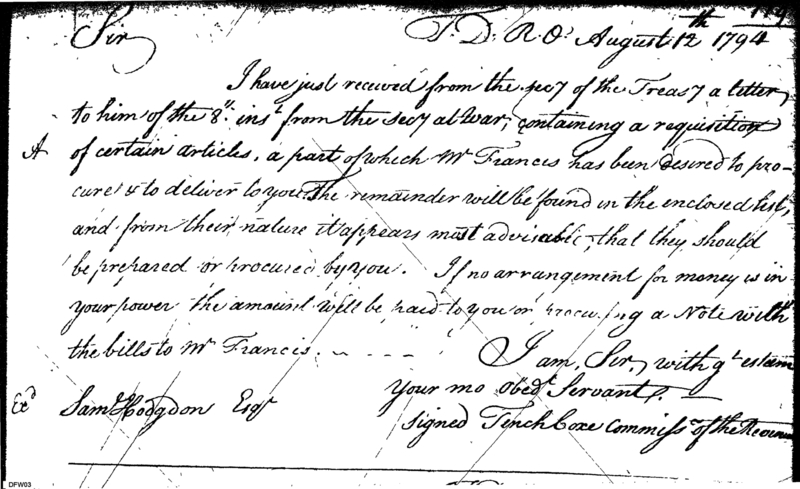 Sir T. D. R. O. August 12th 1794
I have just received from the secy of the Treasy a letter
to him of the 8th inst from the Secy at War, containing a requisition
A of certain articles, a part of which Mr Francis has been desired to pro-
cure & to deliver to you. The remainder will be found in the enclosed list,
and from their nature it appears most advisable, that they should
be prepared or procured by you. If no arrangement for money is in
your power the amount will be paid to you on procuring a Note with
the bills to Mr Francis.
I am, Sir, with gt esteem
your mo obedt Servant.
Exd Saml Hodgdon Esqr
signed Tench Coxe Commissr of the Revenue
DFW03